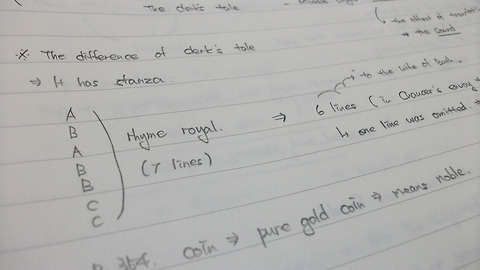 The clerk's tale
the effect of
⇒ the sound
※ The difference of clerk's tale
⇒ It has stanza.
to the wife of Bath..
A
B
A
B
B
C
C
Rhyme royal.
(7 lines)
⇒ 6 lines (in Chaucer's envoy
↳ one line was omitted
P. 354. coin ⇒ pure gold coin ⇒ means noble.